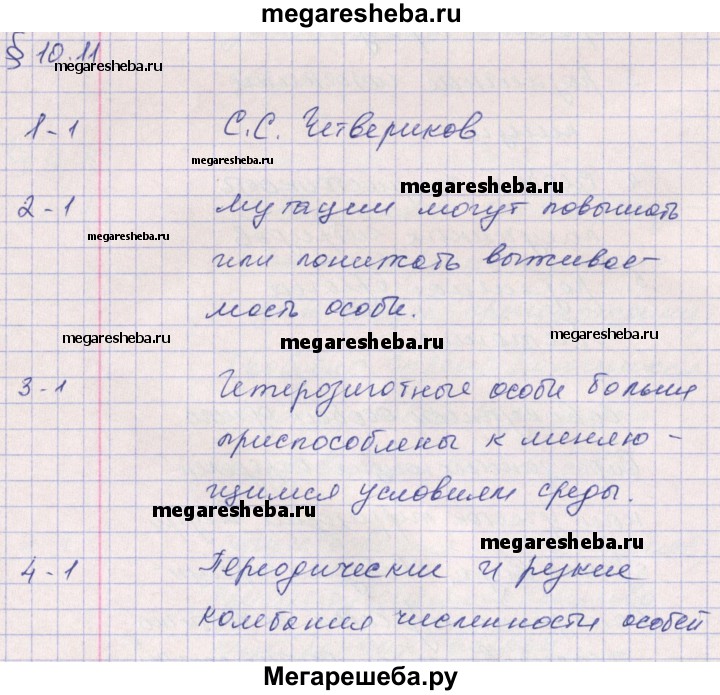 megaresheba.ru
§ 10.11
megaresheba.ru
1-1 С.С. Четвериков
megaresheba.ru
megaresheba.ru
2-1 Мутации могут повышать
megaresheba.ru
или понижать выживае-
мость особи.
megaresheba.ru
megaresheba.ru
megaresheba.ru
3-1 Гетерозиготные особи больше
приспособлены к меняю-
щимся условиям среды.
megaresheba.ru
megaresheba.ru
4-1 Периодические и резкие
колебания численности особей
Мегарешеба.ру